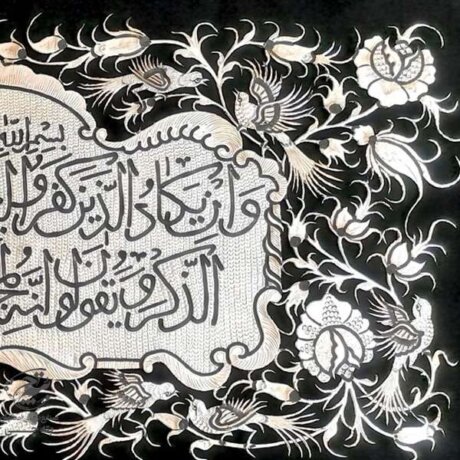 بسم الله
وان يكاد الذين كفروا
الذكر ويقولون انه